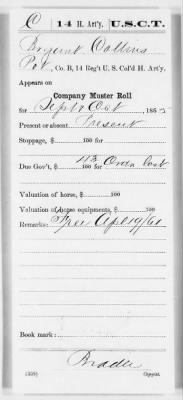 C | 14 H. Art'y. | U.S.C.T.
Bryant Collins
Pvt, Co. B, 14 Reg't U. S. Col'd H. Art'y.
Appears on
Company Muster Roll
for Sept & Oct, 1865
Present or absent Present
Stoppage, $ 100 for
Due Gov't, $ 113/100 for Ordn lost
Valuation of horse, $ 100
Valuation of horse equipments, $ 100
Remarks: Free Apl 19/61
Book mark:
(359)
Copyist.